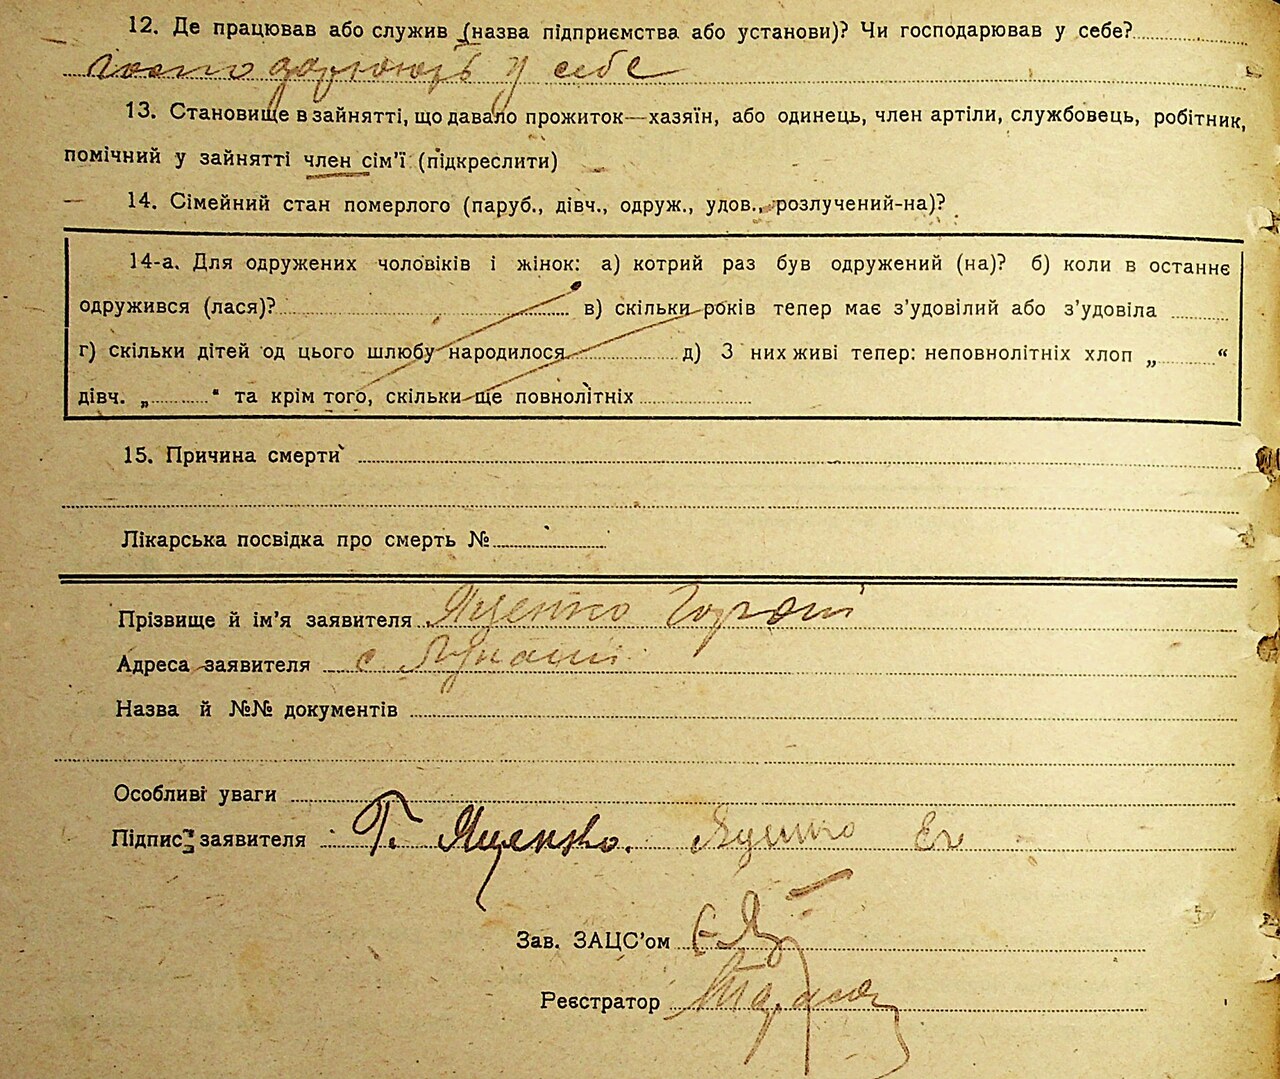 12. Де працював або служив (назва підприємства або установи)? Чи господарював у себе?
господарюють у себе
13. Становище в зайнятті, що давало прожиток—хазяїн, або одинець, член артіли, службовець, робітник,
помічний у зайнятті член сім'ї (підкреслити)
14. Сімейний стан померлого (паруб., дівч., одруж., удов., розлучений-на)?
14-а. Для одружених чоловіків і жінок: а) котрий раз був одружений (на)? б) коли в останнє
одружився (лася)? в) скільки років тепер має з'удовілий або з'удовіла
г) скільки дітей од цього шлюбу народилося д) З них живі тепер: неповнолітніх хлоп „ “
дівч. „ “ та крім того, скільки ще повнолітніх
15. Причина смерти
Лікарська посвідка про смерть №
Прізвище й ім'я заявителя Яценко
Адреса заявителя с.
Назва й №№ документів
Особливі уваги
Підпис заявителя Г. Яценко. Яценко
Зав. ЗАЦС'ом
Реєстратор